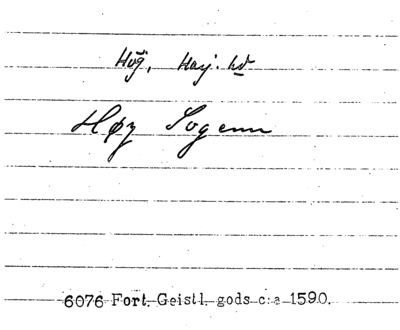 Høj, Høj. hd
Høy Sogenn
6076 Fort. Geistl. gods c:a 1590.